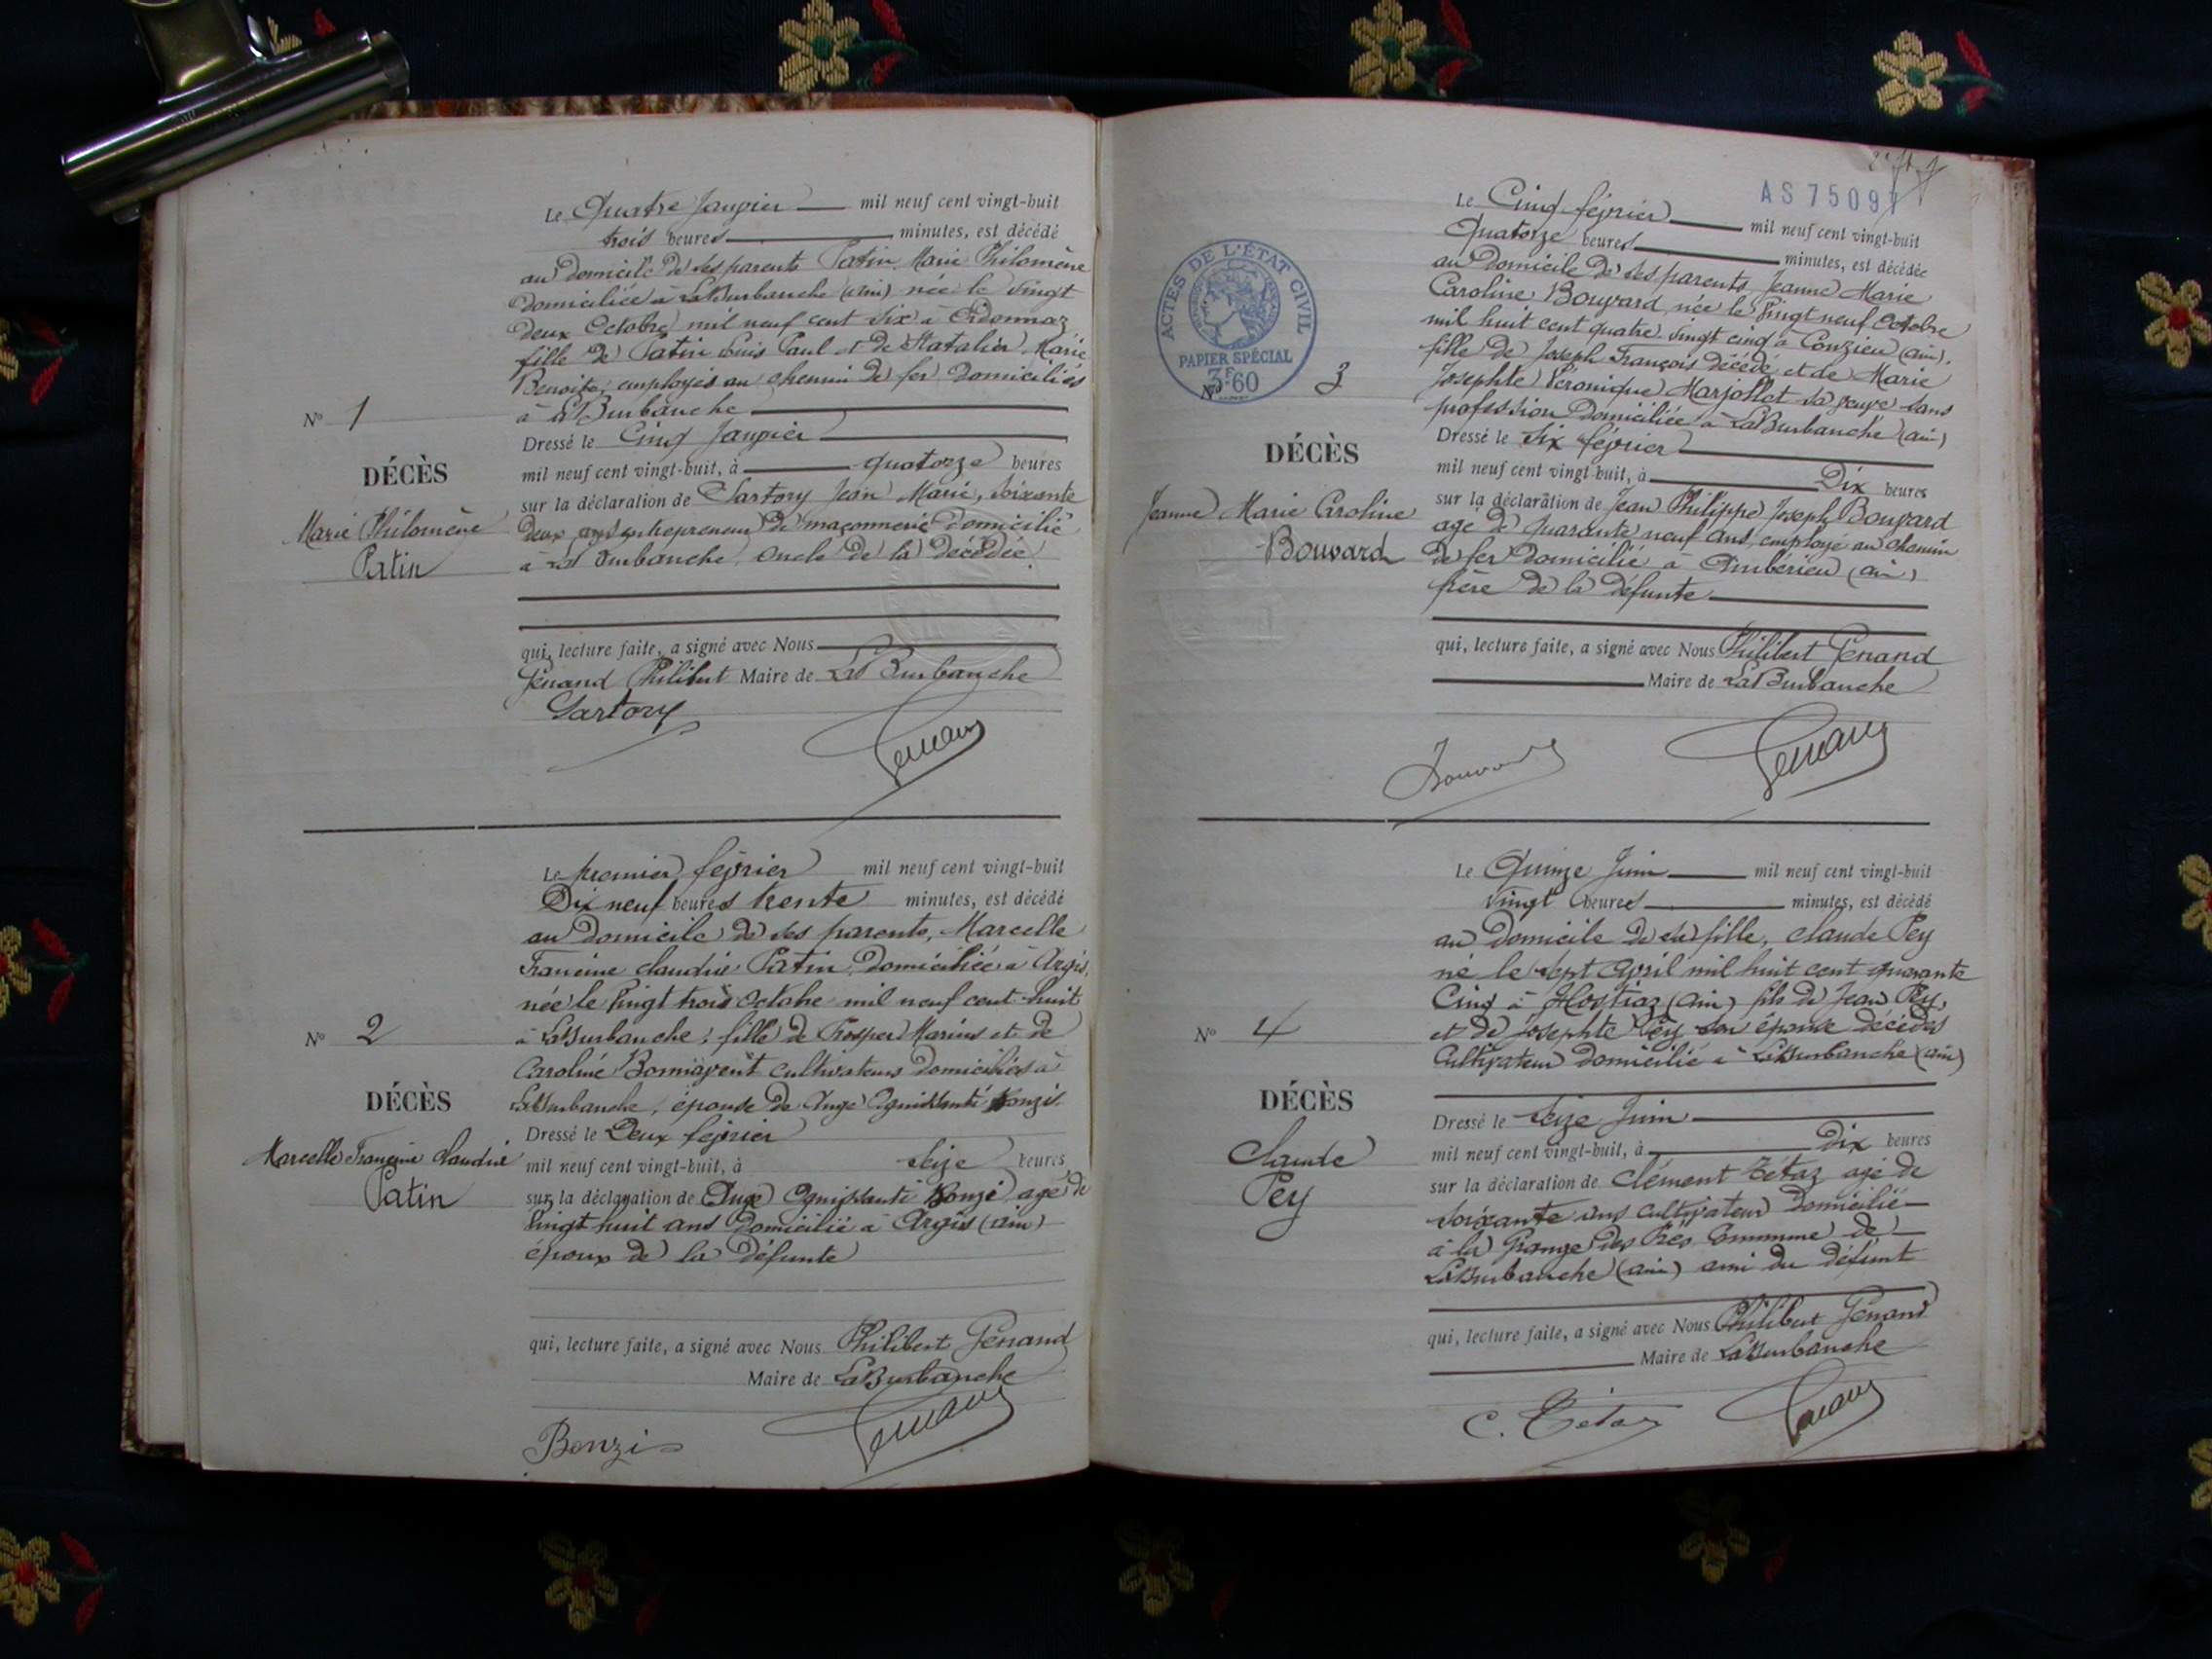 Le Quatre Janvier mil neuf cent vingt-huit
trois heures minutes, est décédé
au domicile de ses parents Patin Marie Philomène
domiciliée à LaBurbanche (Ain) née le vingt
deux Octobre mil neuf cent six à Ordonnaz
fille de Patin Louis Paul et de Marie
Benoite, employés au chemin de fer domiciliés
à LaBurbanche
Nº 1
DÉCÈS
Marie Philomène
Patin
Dressé le Cinq Janvier
mil neuf cent vingt-huit, à quatorze heures
sur la déclaration de Sartory Jean Marie, soixante
deux ans entrepreneur de maçonnerie domicilié
à La Burbanche, oncle de la décédée.
qui, lecture faite, a signé avec Nous
Génand Philibert Maire de La Burbanche
Sartory
Genand
Le premier février mil neuf cent vingt-huit
Dix neuf heures trente minutes, est décédé
au domicile de ses parents, Marcelle
Francine Claudie Patin, domiciliée à Argis,
née le vingt trois Octobre mil neuf cent huit
à LaBurbanche; fille de Prosper Marius et de
Caroline cultivateurs domiciliés à
LaBurbanche, épouse de Ange
Nº 2
DÉCÈS
Marcelle Francine Claudie
Patin
Dressé le Deux février
mil neuf cent vingt-huit, à Seize heures
sur la déclaration de Ange agé de
vingt huit ans domicilié à Argis (ain)
époux de la défunte
qui, lecture faite, a signé avec Nous Philibert Génand
Maire de LaBurbanche
Genand
Bonzi
AS 7509
ACTES DE L'ÉTAT CIVIL
PAPIER SPÉCIAL
3F60
Le Cinq février mil neuf cent vingt-huit
Quatorze heures minutes, est décédée
au domicile de ses parents, Jeanne Marie
Caroline Bouvard née le vingt neuf Octobre
mil huit cent quatre-vingt cinq à Conzieu (ain).
fille de Joseph François décédé et de Marie
Josephte Véronique Marjollet sa veuve sans
profession domiciliée à LaBurbanche (ain)
Nº 3
DÉCÈS
Jeanne Marie Caroline
Bouvard
Dressé le Six février
mil neuf cent vingt-huit, à Dix heures
sur la déclaration de Jean Philippe Joseph Bouvard
agé de quarante neuf ans, employé au chemin
de fer domicilié à Ambérieu (ain)
frère de la défunte
qui, lecture faite, a signé avec Nous Philibert Génand
Maire de LaBurbanche
Bouvard
Genand
Le Quinze Juin mil neuf cent vingt-huit
Vingt heures minutes, est décédé
au domicile de sa fille, Claude Pey
né le Sept Avril mil huit cent quarante
Cinq à Hostiaz (ain) fils de Jean Pey,
et de Josephte Pey son épouse décédés
Cultivateur domicilié à LaBurbanche (ain)
Nº 4
DÉCÈS
Claude
Pey
Dressé le Seize Juin
mil neuf cent vingt-huit, à Dix heures
sur la déclaration de Clément Tétaz agé de
soixante ans cultivateur domicilié
à la Grange des Prés Commune de
LaBurbanche (ain) ami du défunt
qui, lecture faite, a signé avec Nous Philibert Génand
Maire de LaBurbanche
C. Tétaz
Genand